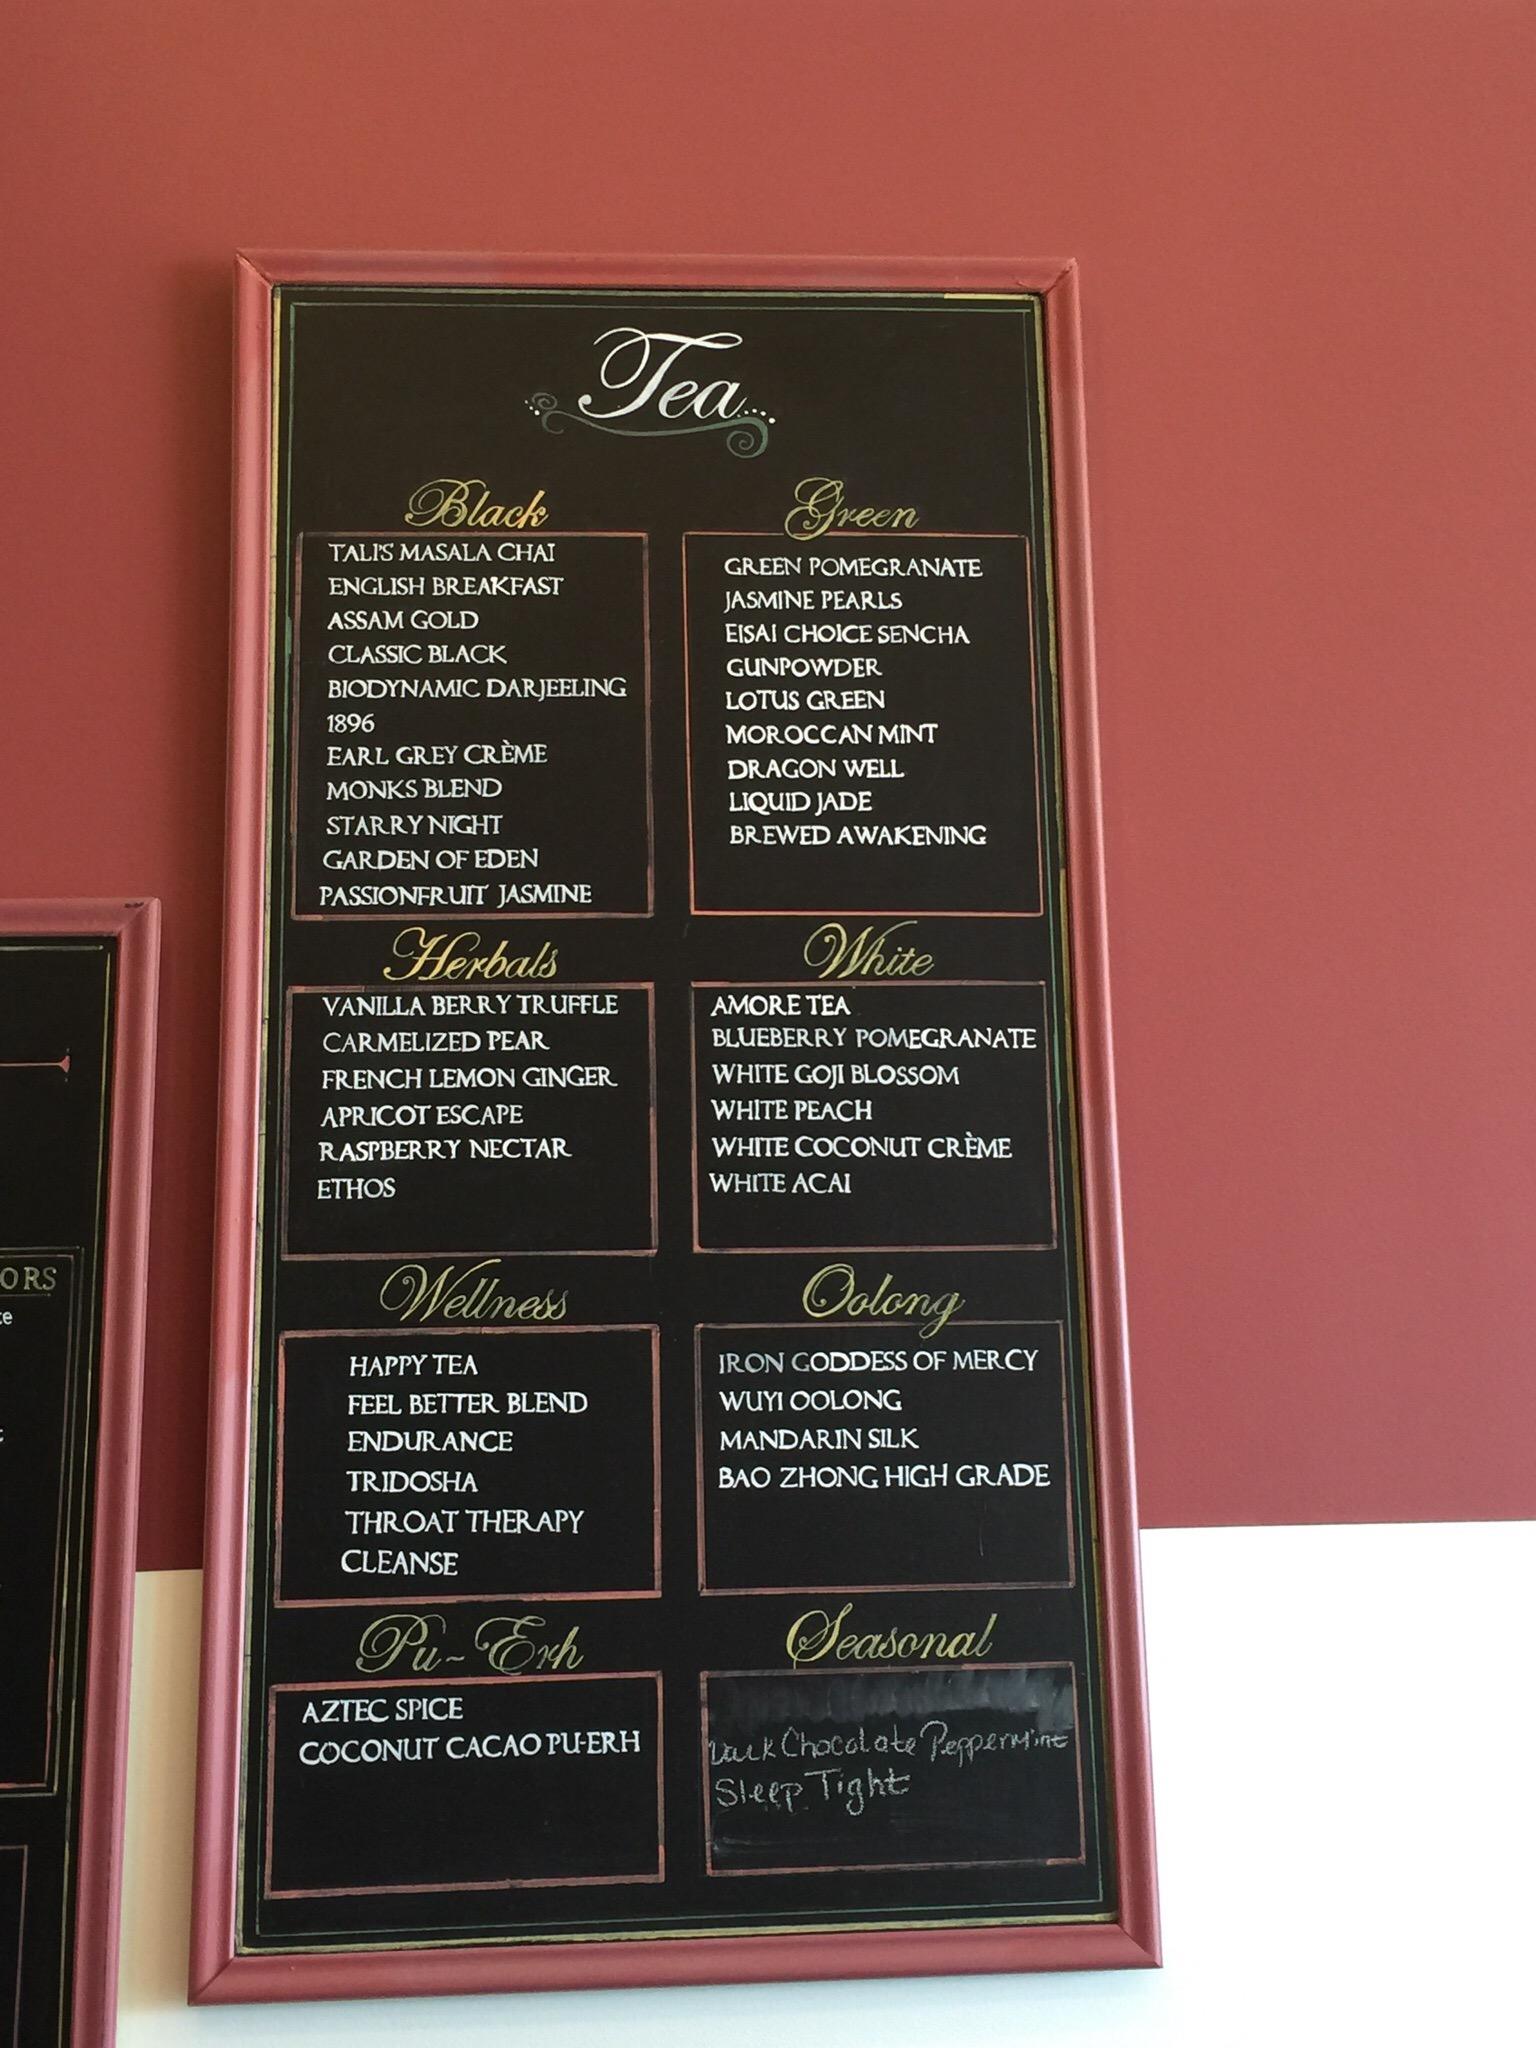 Tea
Black
TALI'S MASALA CHAI
ENGLISH BREAKFAST
ASSAM GOLD
CLASSIC BLACK
BIODYNAMIC DARJEELING
1896
EARL GREY CRÈME
MONKS BLEND
STARRY NIGHT
GARDEN OF EDEN
PASSIONFRUIT JASMINE
Green
GREEN POMEGRANATE
JASMINE PEARLS
EISAI CHOICE SENCHA
GUNPOWDER
LOTUS GREEN
MOROCCAN MINT
DRAGON WELL
LIQUID JADE
BREWED AWAKENING
Herbals
VANILLA BERRY TRUFFLE
CARMELIZED PEAR
FRENCH LEMON GINGER
APRICOT ESCAPE
RASPBERRY NECTAR
ETHOS
White
AMORE TEA
BLUEBERRY POMEGRANATE
WHITE GOJI BLOSSOM
WHITE PEACH
WHITE COCONUT CRÈME
WHITE ACAI
Wellness
HAPPY TEA
FEEL BETTER BLEND
ENDURANCE
TRIDOSHA
THROAT THERAPY
CLEANSE
Oolong
IRON GODDESS OF MERCY
WUYI OOLONG
MANDARIN SILK
BAO ZHONG HIGH GRADE
Pu-Erh
AZTEC SPICE
COCONUT CACAO PU-ERH
Seasonal
Dark Chocolate Peppermint
Sleep Tight